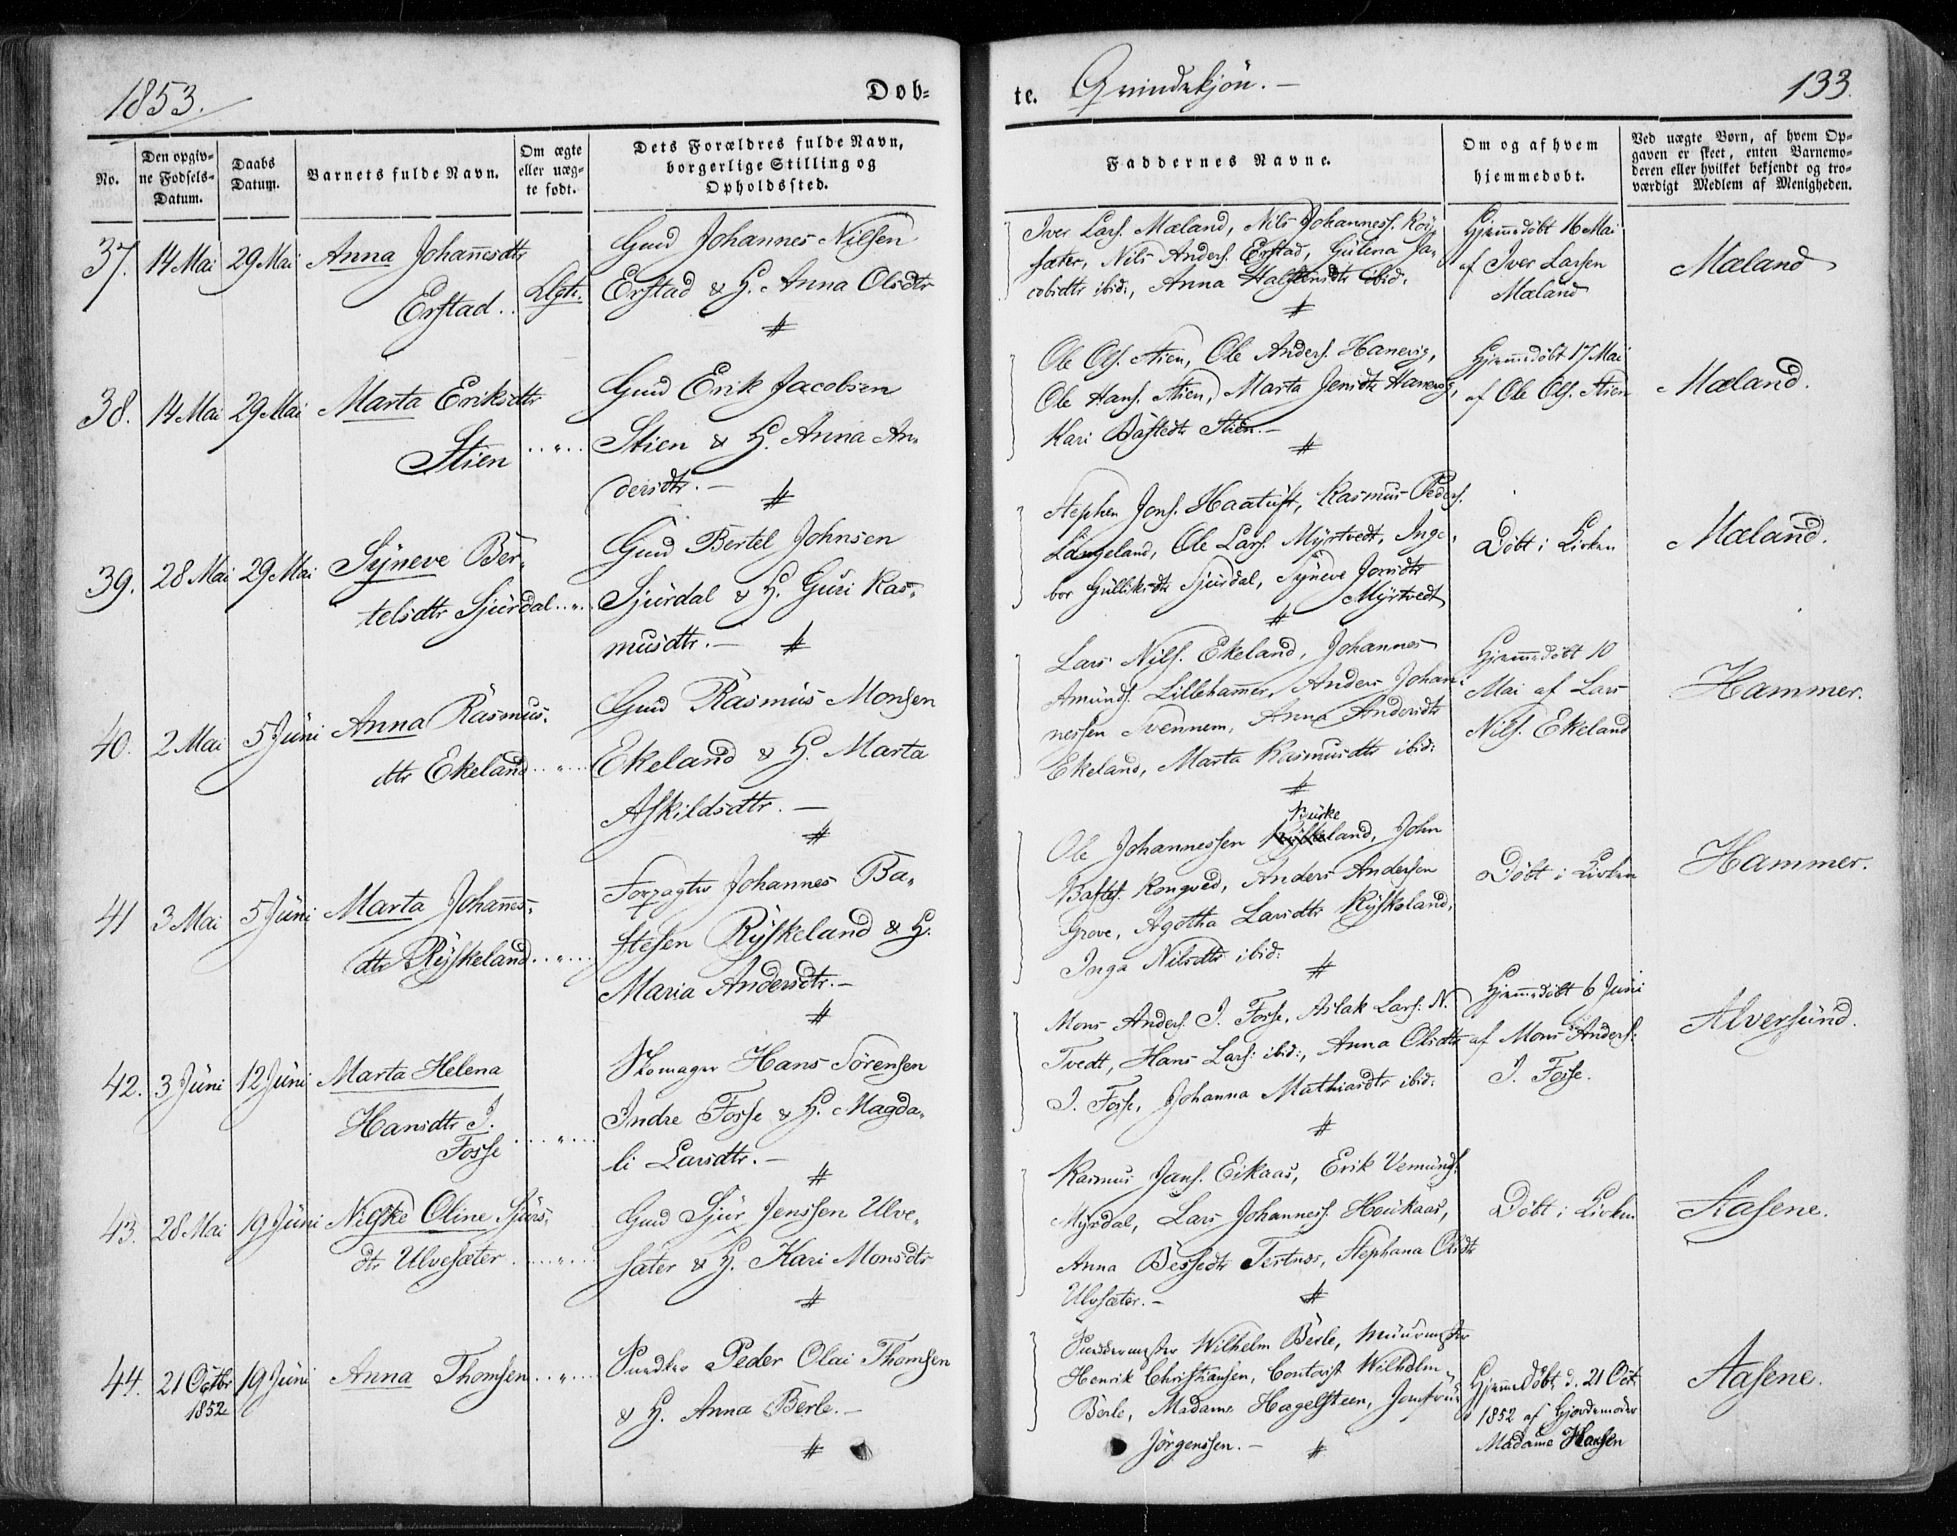 1853.
Døb-
te. Qvindekjøn. –
133.
No.
Den opgiv-
ne Fødsels-
Datum.
Daabs
Datum.
Barnets fulde Navn.
Om ægte
eller uæg-
te født.
Dets Forældres fulde Navn,
borgerlige Stilling og
Opholdssted.
Faddernes Navne.
Om og af hvem
hjemmedøbt.
Ved uægte Børn, af hvem Op-
gaven er skeet, enten Barnemo-
deren eller hvilket bekjendt og tro-
værdigt Medlem af Menigheden.
37. 14 Mai 29 Mai
Anna Johannesdtr
Erstad.
Ægte.
Gmd Johannes Nilsen
Erstad & H. Anna Olsdtr
#
Iver Lars. Mæland, Nils Johanness. Röi-
sæter, Nils Anders. Erstad, Gulena Ja-
cobsdtr ibid:, Anna ibid:
#
Hjemmedöbt 16 Mai
af Iver Larsen
Mæland
Mæland
38. 14 Mai 29 Mai
Marta Eriksdtr
Stien
Gmd Erik Jacobsen
Stien & H. Anna An-
dersdtr. –
#
Ole Ols. Stien, Ole Anders. Hanevig,
Ole Hans. Stien, Marta Jensdtr Hanevig,
Kari Stien. –
#
Hjemmedöbt 17 Mai
af Ole Ols. Stien
Mæland.
39. 28 Mai 29 Mai
Syneve Ber-
telsdtr Sjurdal
Gmd Bertel Johnsen
Sjurdal & H. Guri Ras-
musdtr. –
#
Stephen Jons. Haatuft, Rasmus Peders.
Langeland, Ole Lars. Myrtvedt, Inge-
bor Gulliksdtr Sjurdal, Syneve Jonsdtr
Myrtvedt
#
Döbt i Kirken
Mæland.
40. 2 Mai 5 Juni
Anna Rasmus-
dtr Ekeland
Gmd Rasmus Monsen
Ekeland & H. Marta
Askildsdtr. –
#
Lars Nils. Ekeland, Johannes
Amunds. Lillehamer, Anders Johan-
nessen Svennem, Anna Andersdtr
Ekeland, Marta Rasmusdtr ibid:
#
Hjemmedöbt 10
Mai af Lars
Nils. Ekeland
Hammer.
41 3 Mai 5 Juni
Marta Johannes-
dtr Ryskeland
Forpagter Johannes Ba-
stesen Ryskeland & H.
Maria Andersdtr. –
#
Burke
Ole Johannessen land, John
Basts. Rongved, Anders Andersen
Grove, Agotha Larsdtr Ryskeland,
Inga Nilsdtr ibid:
#
Döbt i Kirken
Hammer.
42. 3 Juni 12 Juni
Marta Helena
Hansdtr I.
Fosse
Skomager Hans Sörensen
Indre Fosse & H. Magda-
li Larsdtr. –
#
Mons Anders. I. Fosse, Aslak Lars. N.
Tvedt, Hans Lars: ibid:, Anna Olsdtr
I. Fosse, Johanna Mathiasdtr ibid:
#
Hjemmedöbt 6 Juni
af Mons Anders:
I. Fosse.
Alversund.
43. 28 Mai 19 Juni
Nilske Oline Sjurs-
dtr Ulvesæter
Gmd Sjur Jenssen Ulve-
sæter & H. Kari Monsdtr
#
Rasmus Jans. Eikaas, Erik Vemunds.
Myrdal, Lars Johanness. Houkaas,
Anna Bessedtr Tertnæs, Stephana Olsdtr
Ulvsæter. –
#
Döbt i Kirken
Aasene.
44. 21 Octbr 19 Juni
1852
Anna Thomsen
Snedker Peder Olai Thomsen
& H. Anna Berle. –
#
Wilhelm Berle, Muurmester
Henrik Christiansen, Contorist Wilhelm
Berle, Madame Hagelsteen, Jomfrue
Jörgenssen. –
#
Hjemmedöbt d. 21 Oct.
1852 af Gjordemoder
Madame Hansen
Aasene.